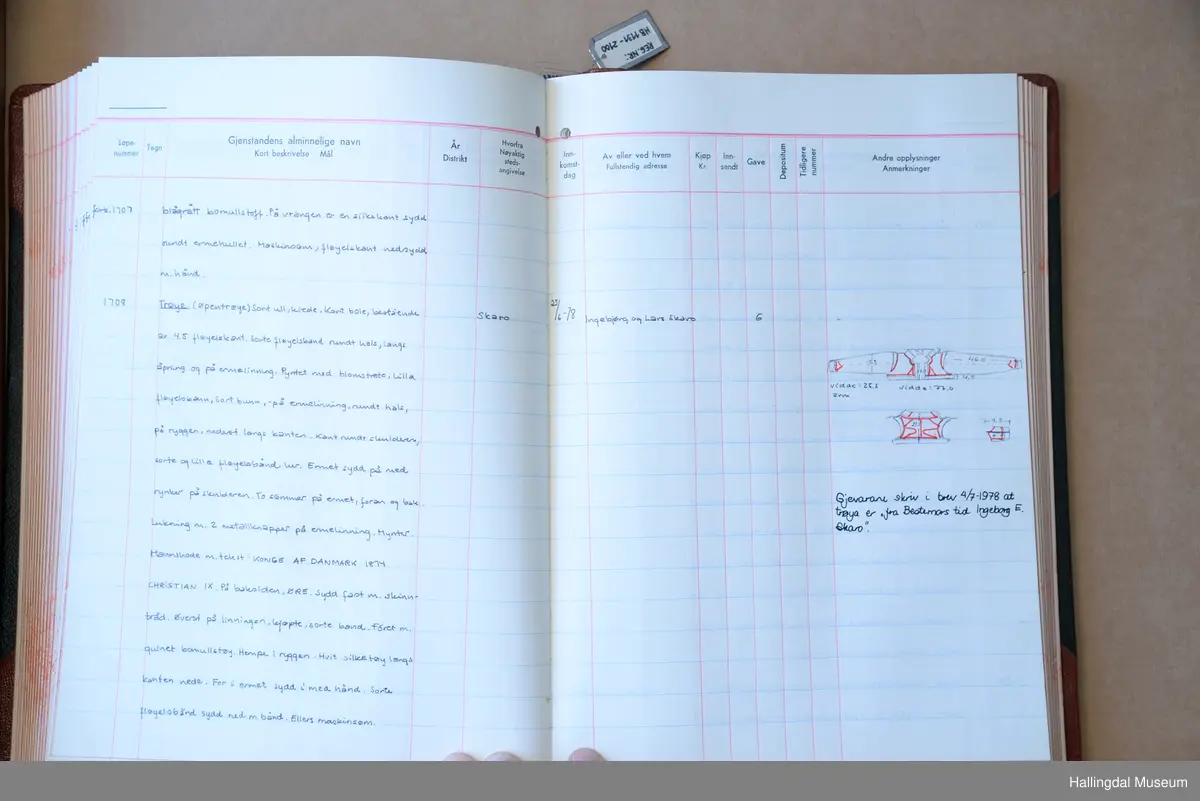 REG.NR.:
HB 1131 - 2100
Løpe-
nummer
Tegn
Gjenstandens alminnelige navn
Kort beskrivelse Mål
År
Distrikt
Hvorfra
Nøyaktig
steds-
angivelse
Inn-
komst-
dag
Av eller ved hvem
Fullstendig adresse
Kjøp
Kr.
Inn-
sendt
Gave
Depositum
Tidligere
nummer
Andre opplysninger
Anmerkninger
forts. 1707
blågrått bomullstoff. På vrangen er en silkekant sydd
rundt ermehullet. Maskinsøm, fløyelskant nedsydd
m. hånd.
1708
Trøye (opentrøye) Sort ull, klede, kort bole, bestående
av 4.5 fløyelskant. Sorte fløyelsbånd rundt hals, langs
sprung og på ermelinning. Pyntet med blomstrete, lilla
fløyelsbånd, sort bunn, - på ermelinning, rundt hals,
på ryggen, nederst langs kanten. Kant rundt skulderen,
sorte og lilla fløyelsbånd her. Ermet sydd på med
rynker på skulderen. To sømmer på ermet, foran og bak.
Lukning m. 2 metallknapper på ermelinning. Mynter.
Mannshode m. tekst: KONGE AF DANMARK 1874
CHRISTIAN IX. På baksiden, ØRE. Sydd fast m. skinn-
tråd. Øverst på linningen, kjøpte, sorte bånd. Fôret m.
gulnet bomullstøy. Hempe i ryggen. Hvit silketøy langs
kanten nede. For i ermet sydd i med hånd. Sorte
fløyelsbånd sydd ned m. hånd. Ellers maskinsøm.
Skaro
23/6-78
Ingebjørg og Lars Skaro
G
46.0
4,5
vidde: 25,5
erm
vidde: 77.0
Gjevarane skriv i brev 4/7-1978 at
trøya er "fra Bestemors tid Ingeborg E.
Skaro".
Hallingdal Museum